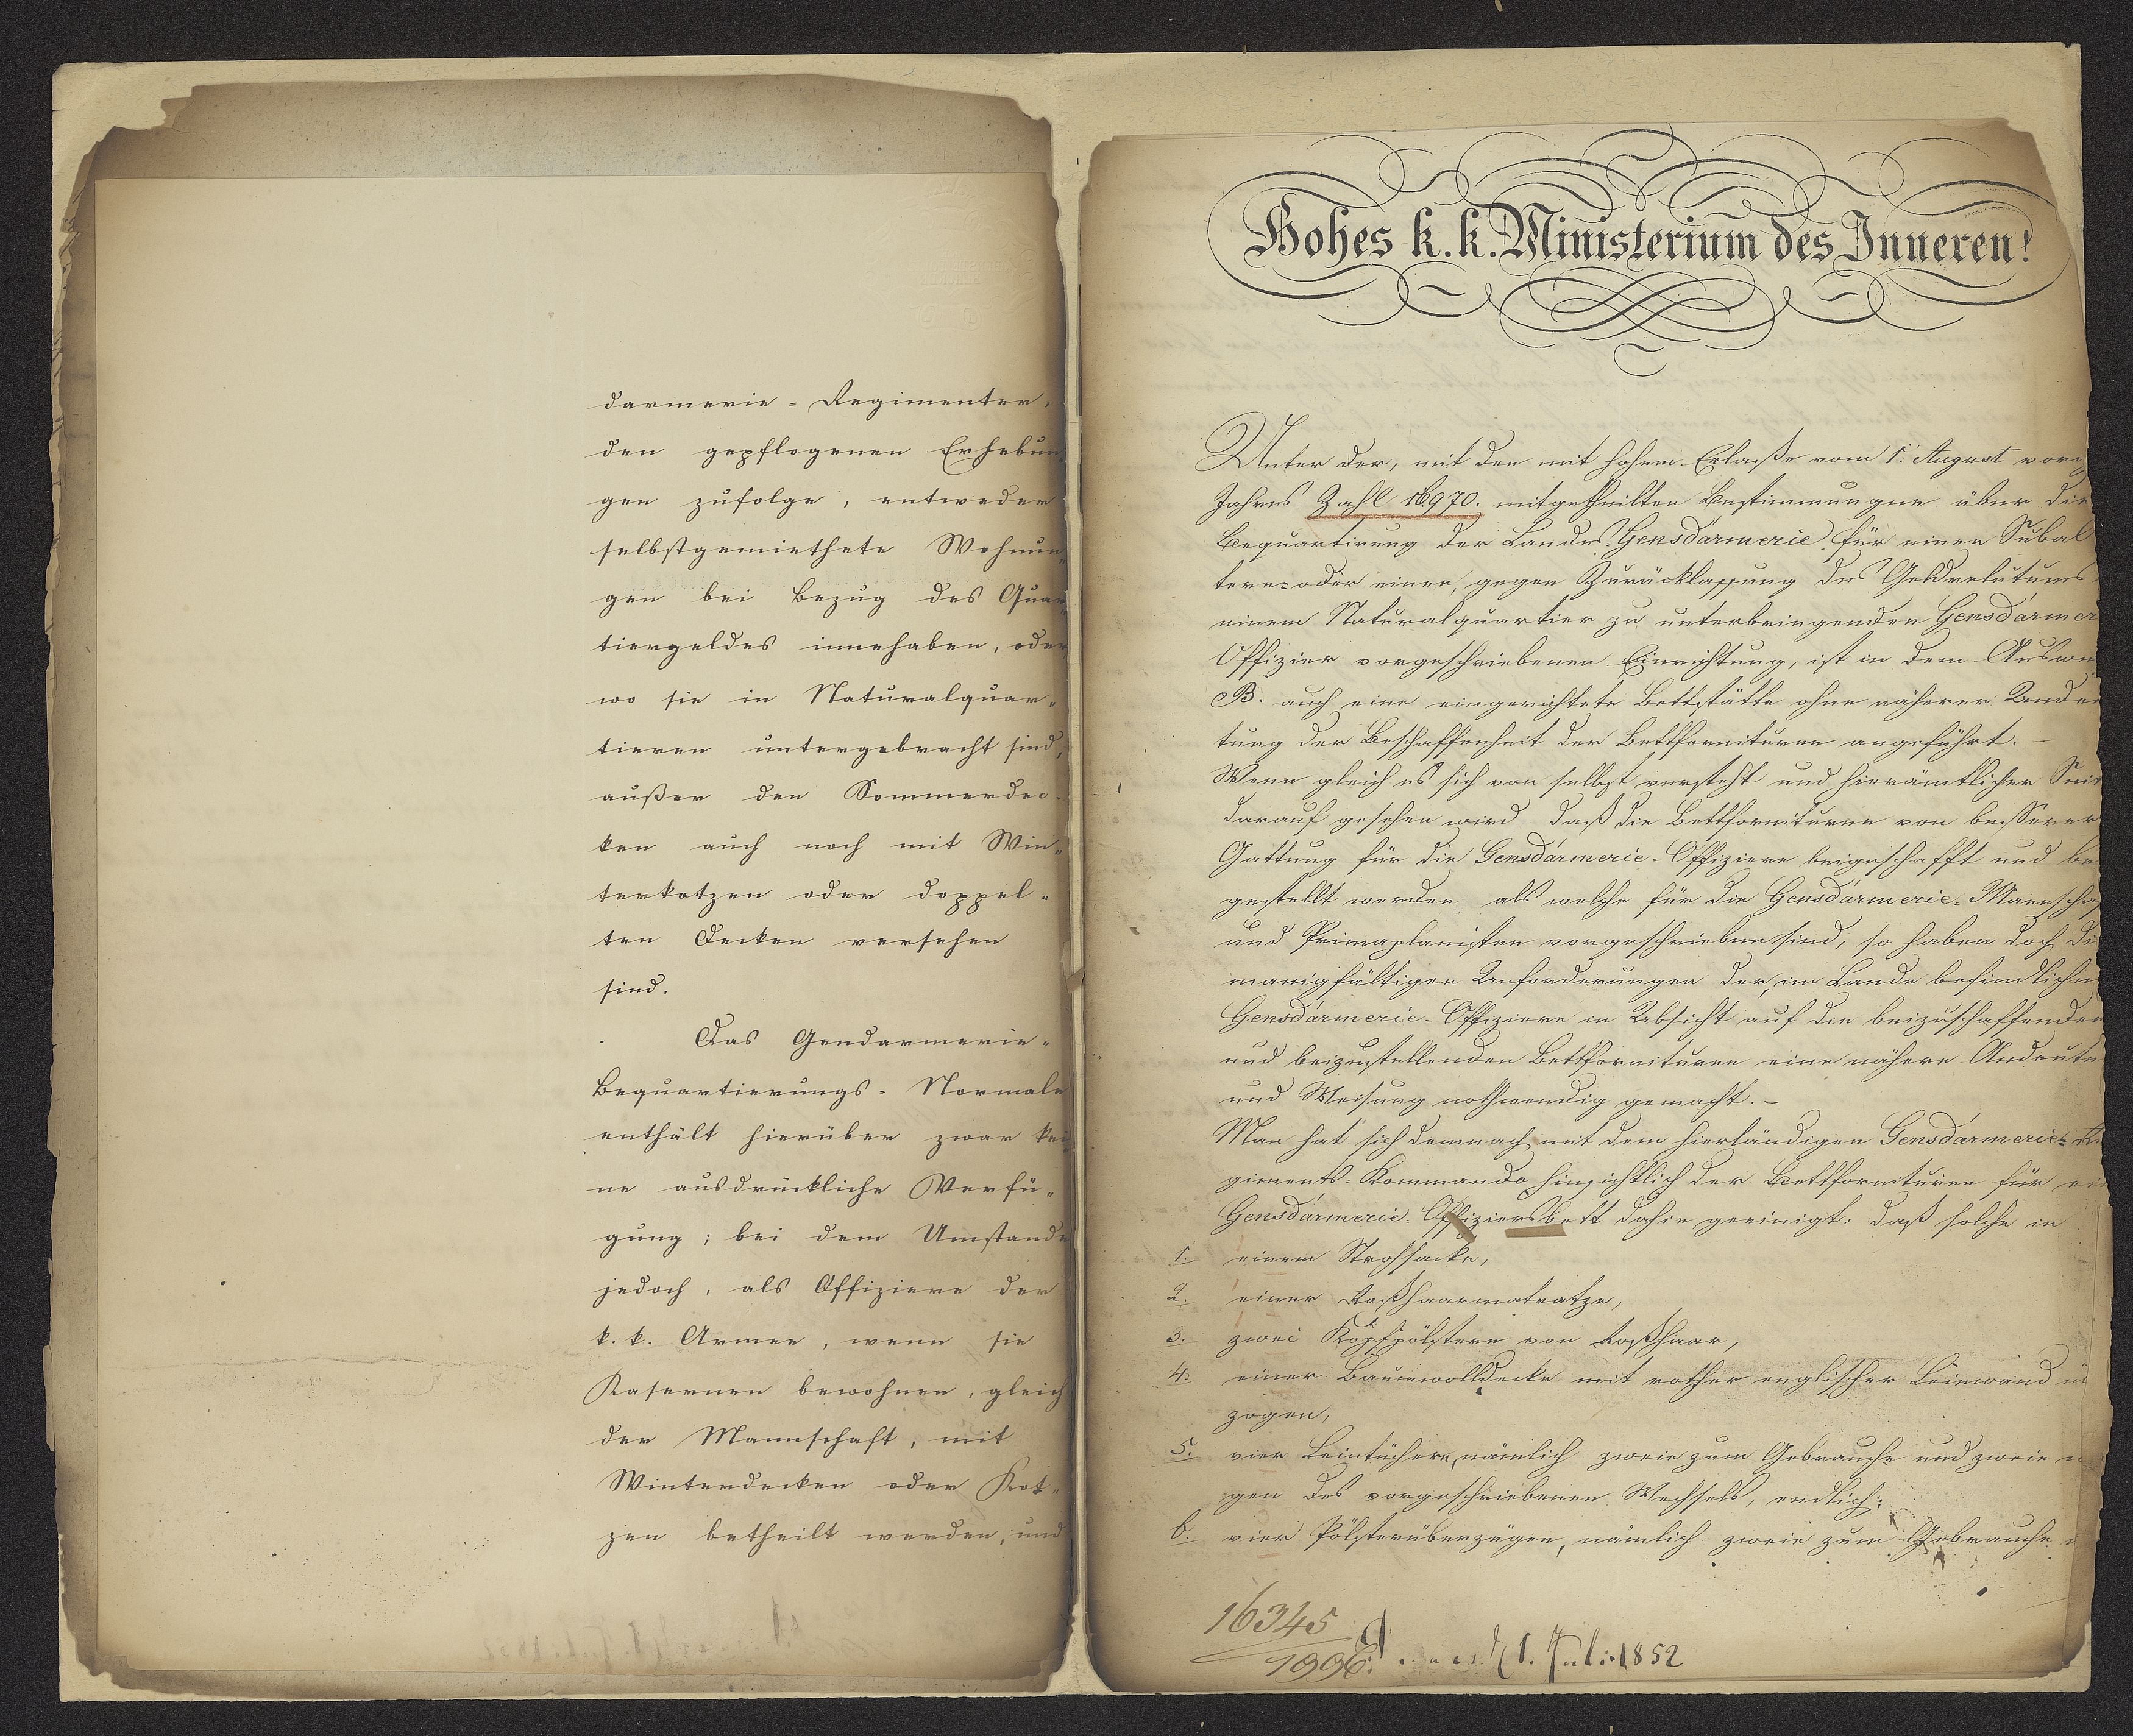 darmerie = Regimenter,
den gepflogenen Erhebun
gen zufolge, entweder
selbstgemiethete Wohnun
gen bei Bezug des Quar
tiergeldes innehaben, oder
wo sie in Naturalquar=
tieren untergebracht sind,
außer den Sommerdec
ken auch noch mit Win=
terkotzen oder doppel=
ten Decken versehen
sind.
Das Gendarmerie=
Bequartierungs = Normale
enthält hierüber zwar kei
ne ausdrückliche Verfü=
gung; bei dem Umstande
jedoch, als Offiziere der
k. k. Armee, wenn sie
Kasernen bewohnen, gleich
der Mannschaft, mit
Winterdecken oder Kot=
zen betheilt werden, und
Hohes k. k. Ministerium des Inneren!
Unter der, mit den mit hohem Erlaße vom 1. August vori
Jahres Zahl 16970. mitgetheilten Bestimmungen über die
Bequartirung der Landes Gensdármerie für einen Subal
tern= oder einen, gegen Zurücklassung des Geldrelutums
einem Naturalquartier zu unterbringenden Gensdármer
Offizier vorgeschriebenen Einrichtung, ist in dem Auswe
B. auch eine eingerichtete Bettstätte ohne näherer Andeu
tung der Beschaffenheit der Bettfornituren angeführt. —
Wenn gleich es sich von selbst versteht und hierämtlicher Seit
darauf gesehen wird daß die Bettfornituren von besserer
Gattung für die Gensdármerie-Offiziere beigeschafft und be
gestellt werden als welche für die Gensdármerie-Mannscha
und Primaplanisten vorgeschrieben sind, so haben doch di
manigfältigen Anforderungen der, im Lande befindlichen
Gensdármerie-Offiziere in Absicht auf die beizuschaffenden
und beizustellenden Bettfornituren eine nähere Andeutu
und Weisung nothwendig gemacht. —
Man hat sich demnach mit dem hierländigen Gensdármerie= Re
giments-Kommando hinsichtlich der Bettfornituren für ei
Gensdármerie-Offiziersbett dahin geeinigt: daß solche in
1. einem Strohsacke,
2. einer Roßhaarmatratze,
3. zwei Kopfpölstern von Roßhaar,
4. einer Baumwolldecke mit rother englischer Leinwand ü
zogen,
5. vier Leintüchern, nämlich zwei zum Gebrauche und zwei
gen des vorgeschriebenen Wechsels, endlich:
6. vier Pölsterüberzügen, nämlich zwei zum Gebrauche
16345
1996. 1. Juli 1852